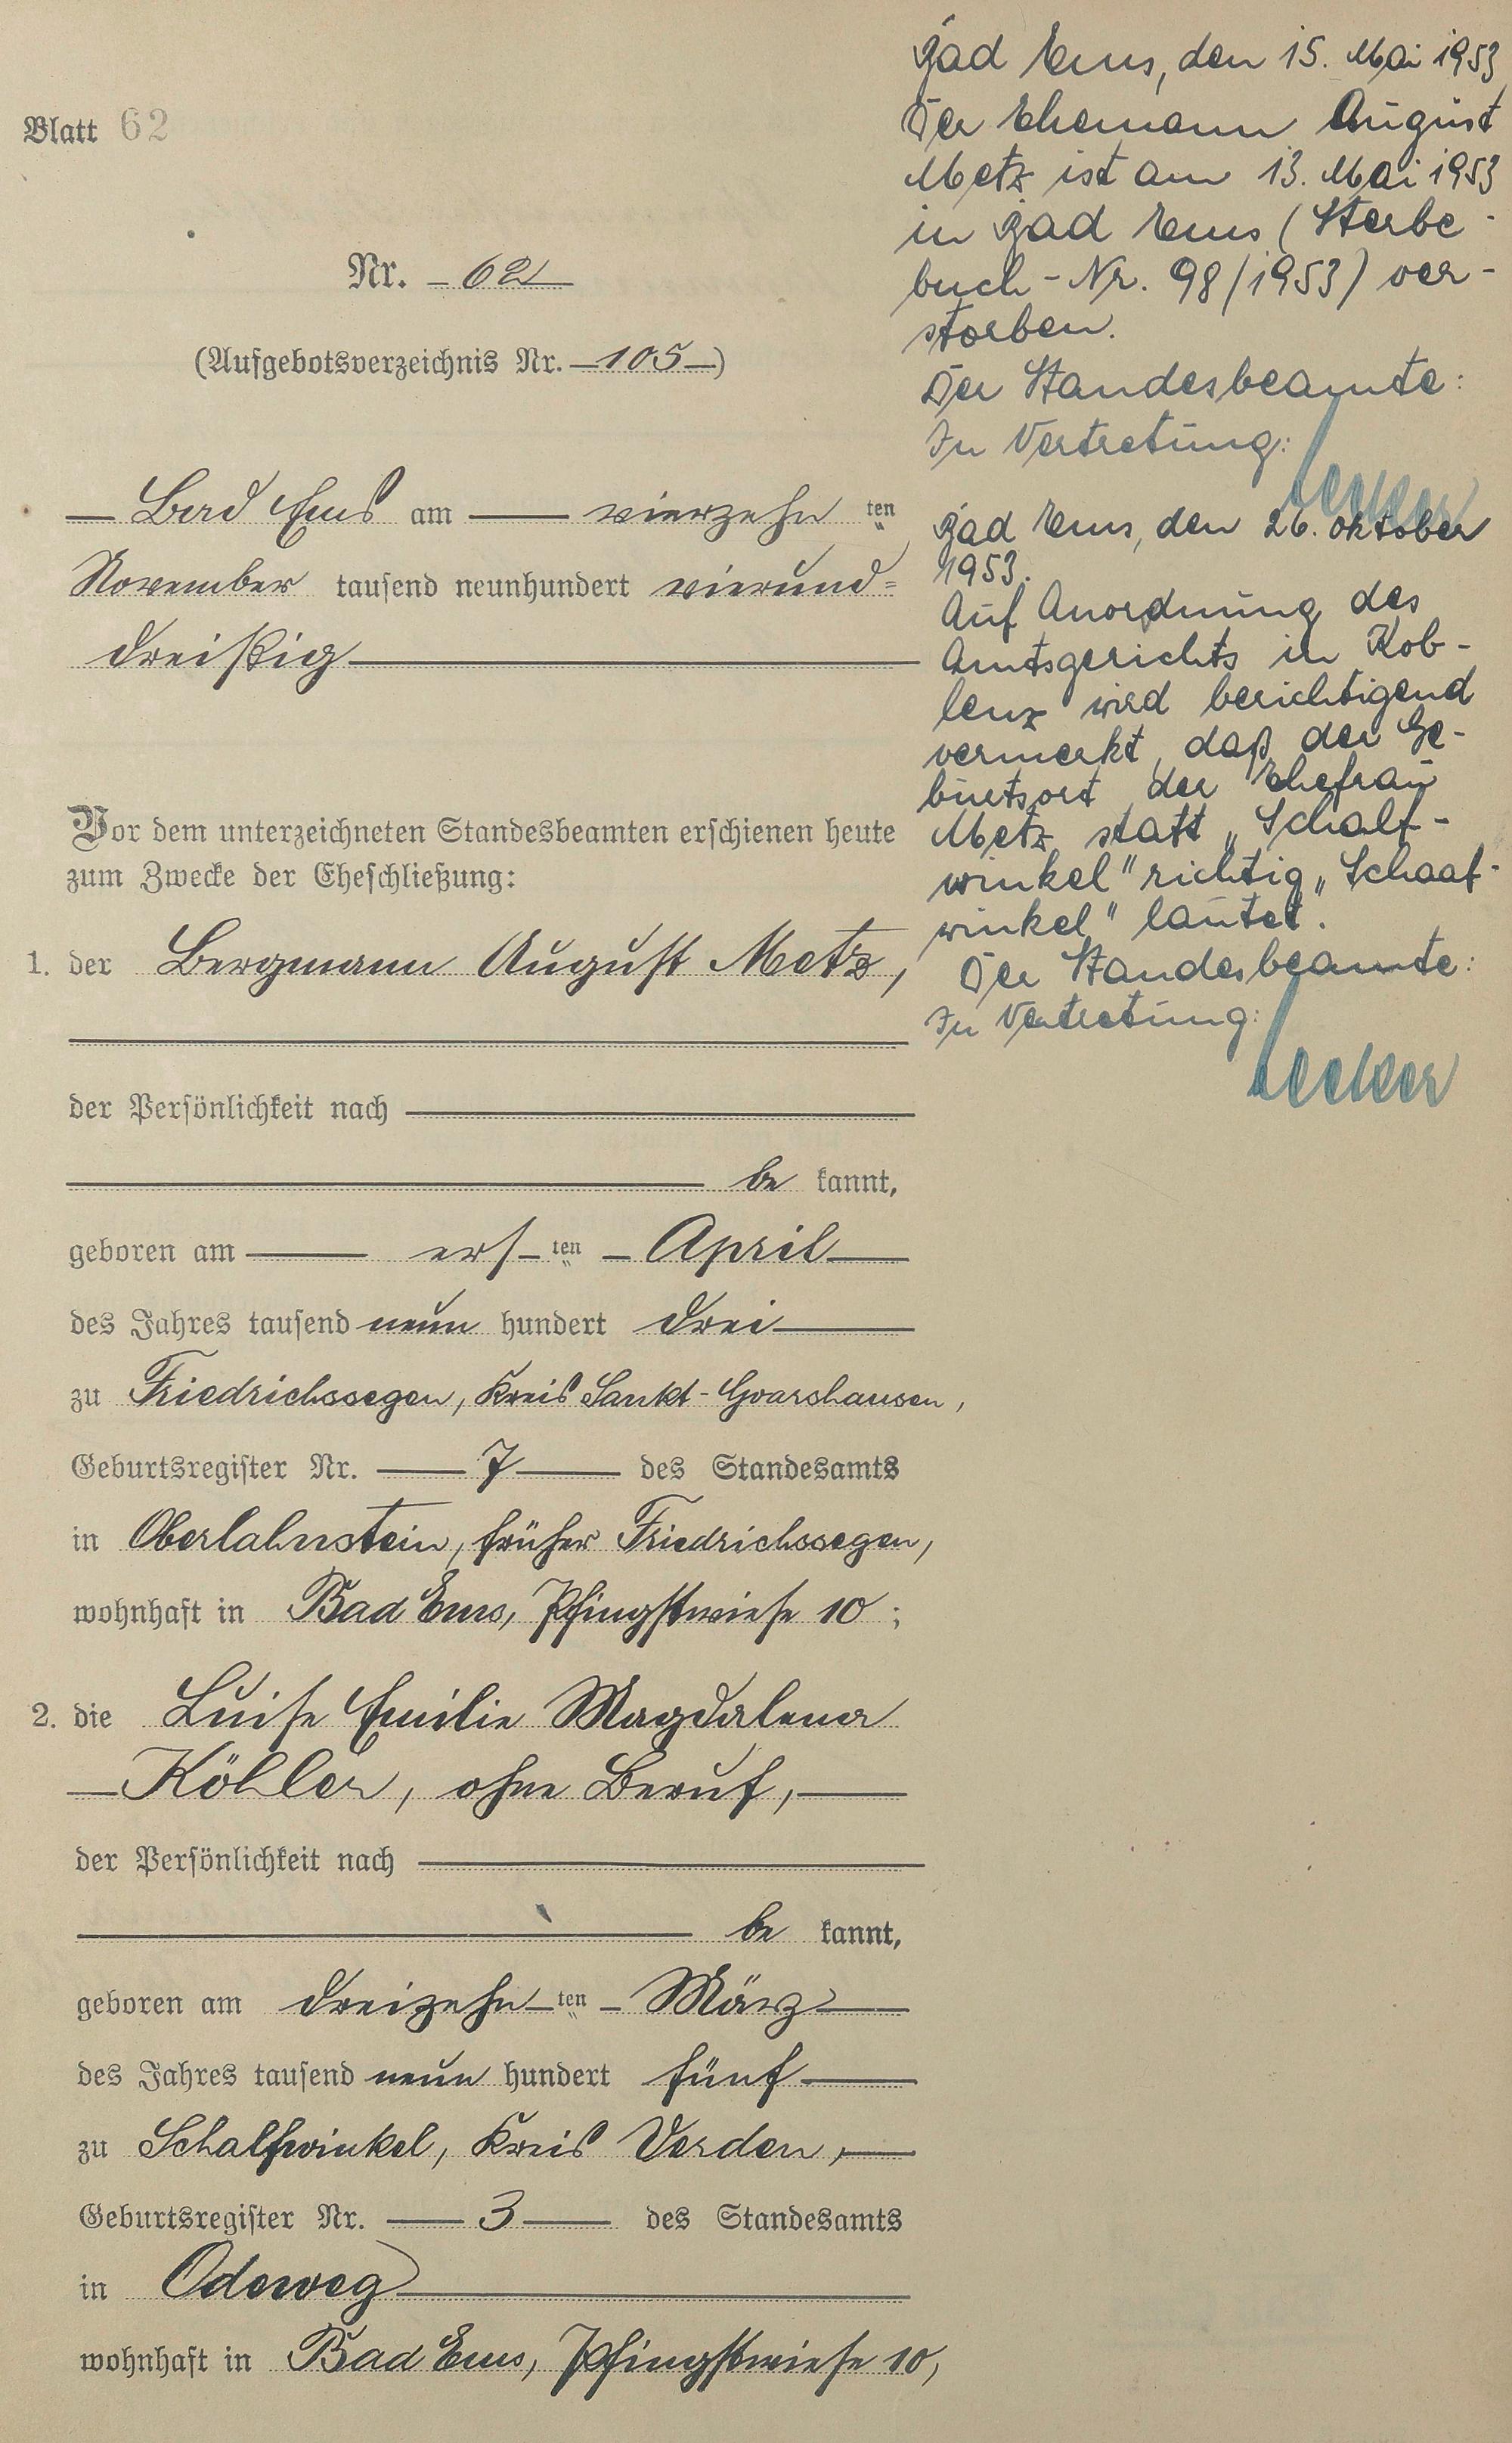 Blatt 62
Nr. 62
(Aufgebotsverzeichnis Nr. 105)
Bad Ems am vierzehn ten
November tausend neunhundert vierund=
dreißig
Vor dem unterzeichneten Standesbeamten erschienen heute
zum Zwecke der Eheschließung:
1. der Bergmann August Metz,
der Persönlichkeit nach
be kannt,
geboren am ers ten April
des Jahres tausend neun hundert drei
zu Friedrichssegen, Kreis Sankt-Goarshausen,
Geburtsregister Nr. 7 des Standesamts
in Oberlahnstein, früher Friedrichssegen,
wohnhaft in Bad Ems, Pfingstwiese 10;
2. die Luise Emilie Magdalena
Köhler, ohne Beruf,
der Persönlichkeit nach
be kannt,
geboren am dreizehn ten März
des Jahres tausend neun hundert fünf
zu Schalfwinkel, Kreis Verden,
Geburtsregister Nr. 3 des Standesamts
in Odeweg
wohnhaft in Bad Ems, Pfingstwiese 10,
Bad Ems, den 15. Mai 1953
Der Ehemann August
Metz ist am 13. Mai 1953
in Bad Ems (Sterbe-
buch-Nr. 98/1953) ver-
storben.
Der Standesbeamte:
In Vertretung:
Bad Ems, den 26. Oktober
1953.
Auf Anordnung des
Amtsgerichts in Kob-
lenz wird berichtigend
vermerkt, daß der Ge-
burtsort der Ehefrau
Metz statt „Schalf-
winkel" richtig „Schaaf-
winkel" lautet.
Der Standesbeamte:
In Vertretung: